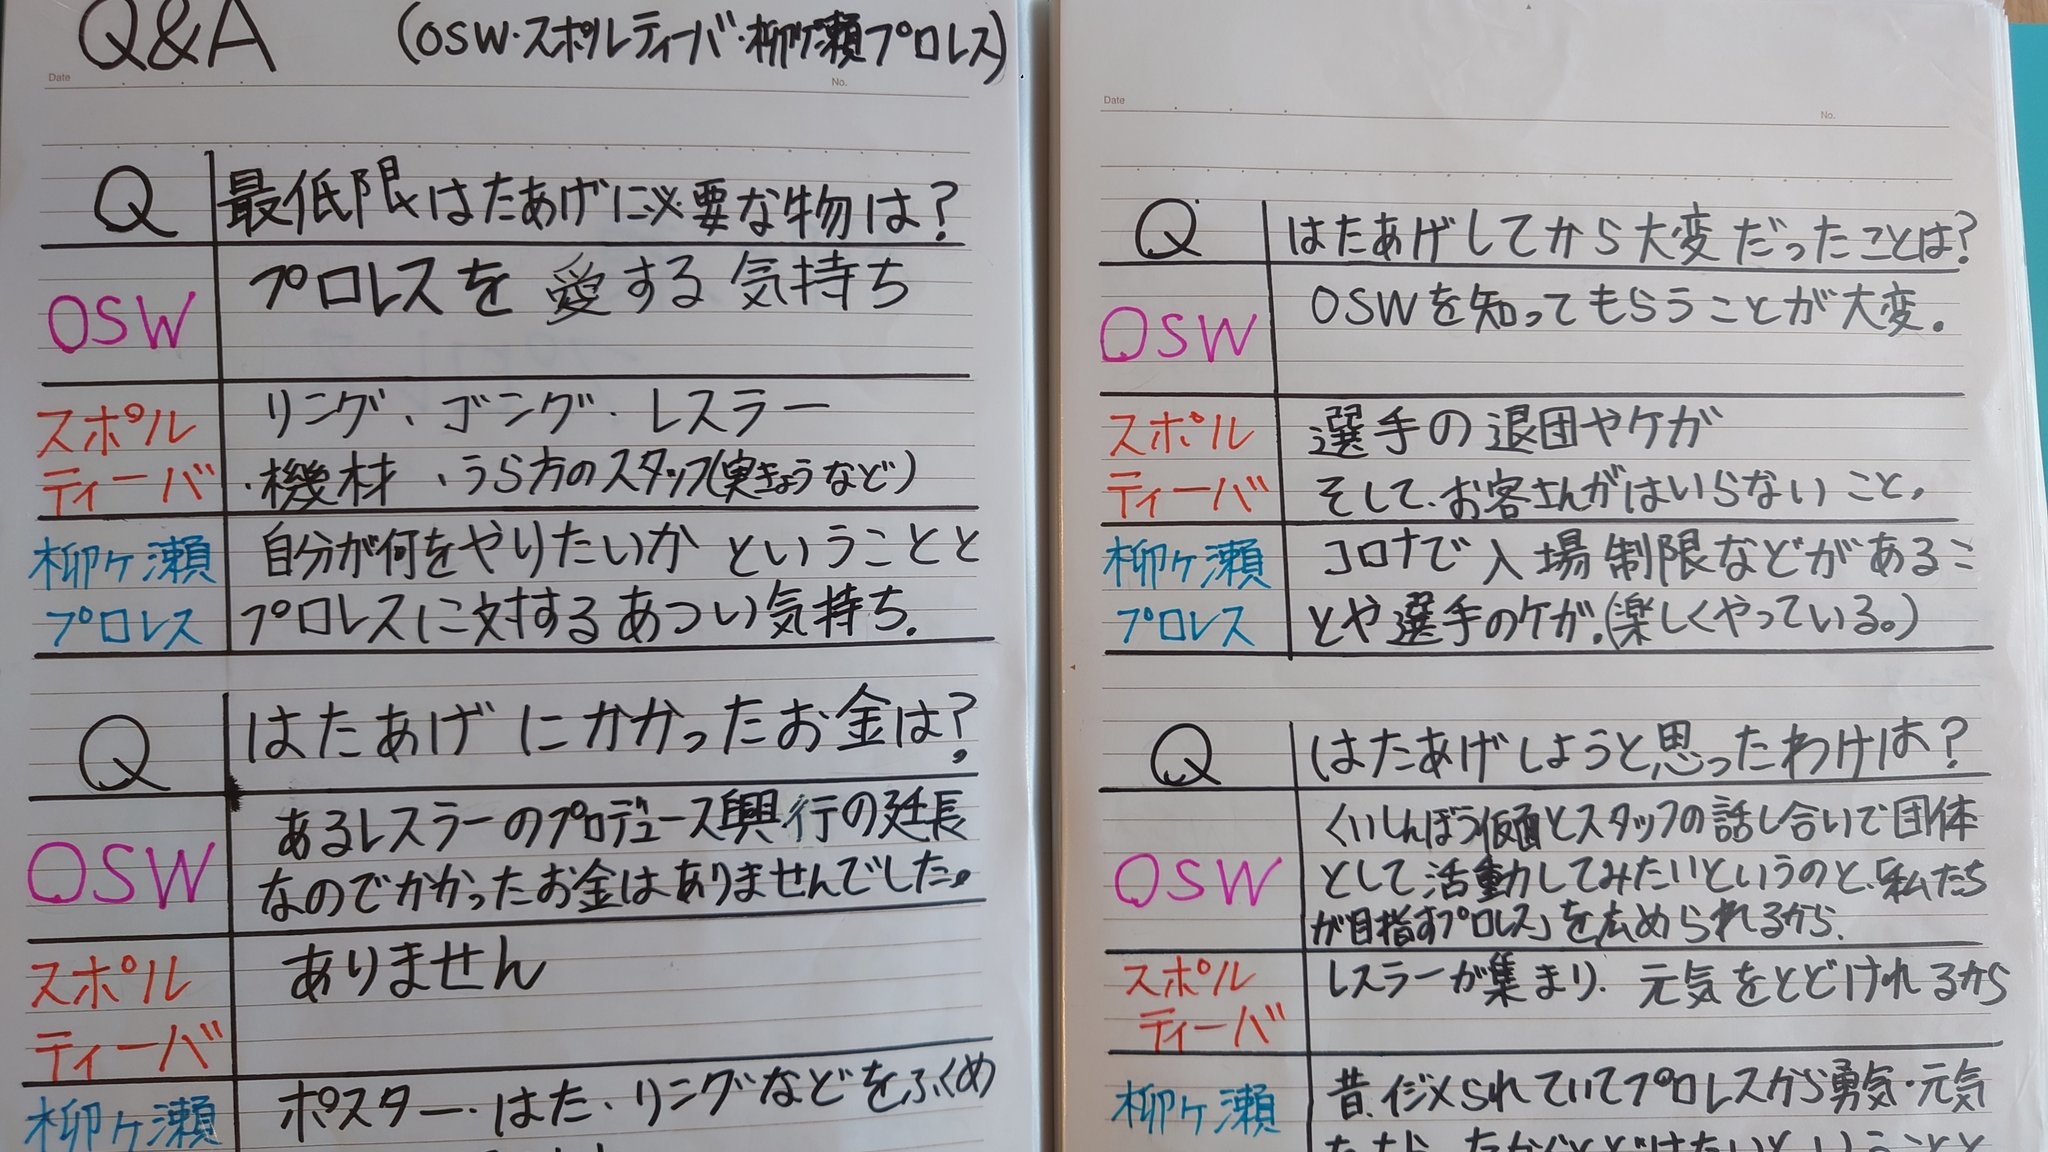 Q&A (OSW・スポルティーバ・柳ヶ瀬プロレス)
Date No.
Q 最低限はたあげに必要な物は?
OSW プロレスを愛する気持ち
スポル リング、ゴング・レスラー
ティーバ ・機材、うら方のスタッフ(実きょうなど)
柳ヶ瀬 自分が何をやりたいかということと
プロレス プロレスに対するあつい気持ち.
Q はたあげにかかったお金は?
OSW
あるレスラーのプロデュース興行の延長
なのでかかったお金はありませんでした。
スポル ありません
ティーバ
柳ヶ瀬 ポスター・はた、リングなどをふくめ
Date No.
Q はたあげしてから大変だったことは?
OSW OSWを知ってもらうことが大変.
スポル 選手の退団やケガ
ティーバ そして、お客さんがはいらないこと.
柳ヶ瀬 コロナで入場制限などがあるこ
プロレス とや選手のケガ.(楽しくやっている。)
Q はたあげしようと思ったわけは?
OSW
くいしんぼう仮面とスタッフの話し合いで団体
として活動してみたいというのと、「私たち
が目指すプロレス」を広められるから.
スポル レスラーが集まり、元気をとどけれるから
ティーバ
柳ヶ瀬 昔、イジメられていてプロレスから勇気・元気